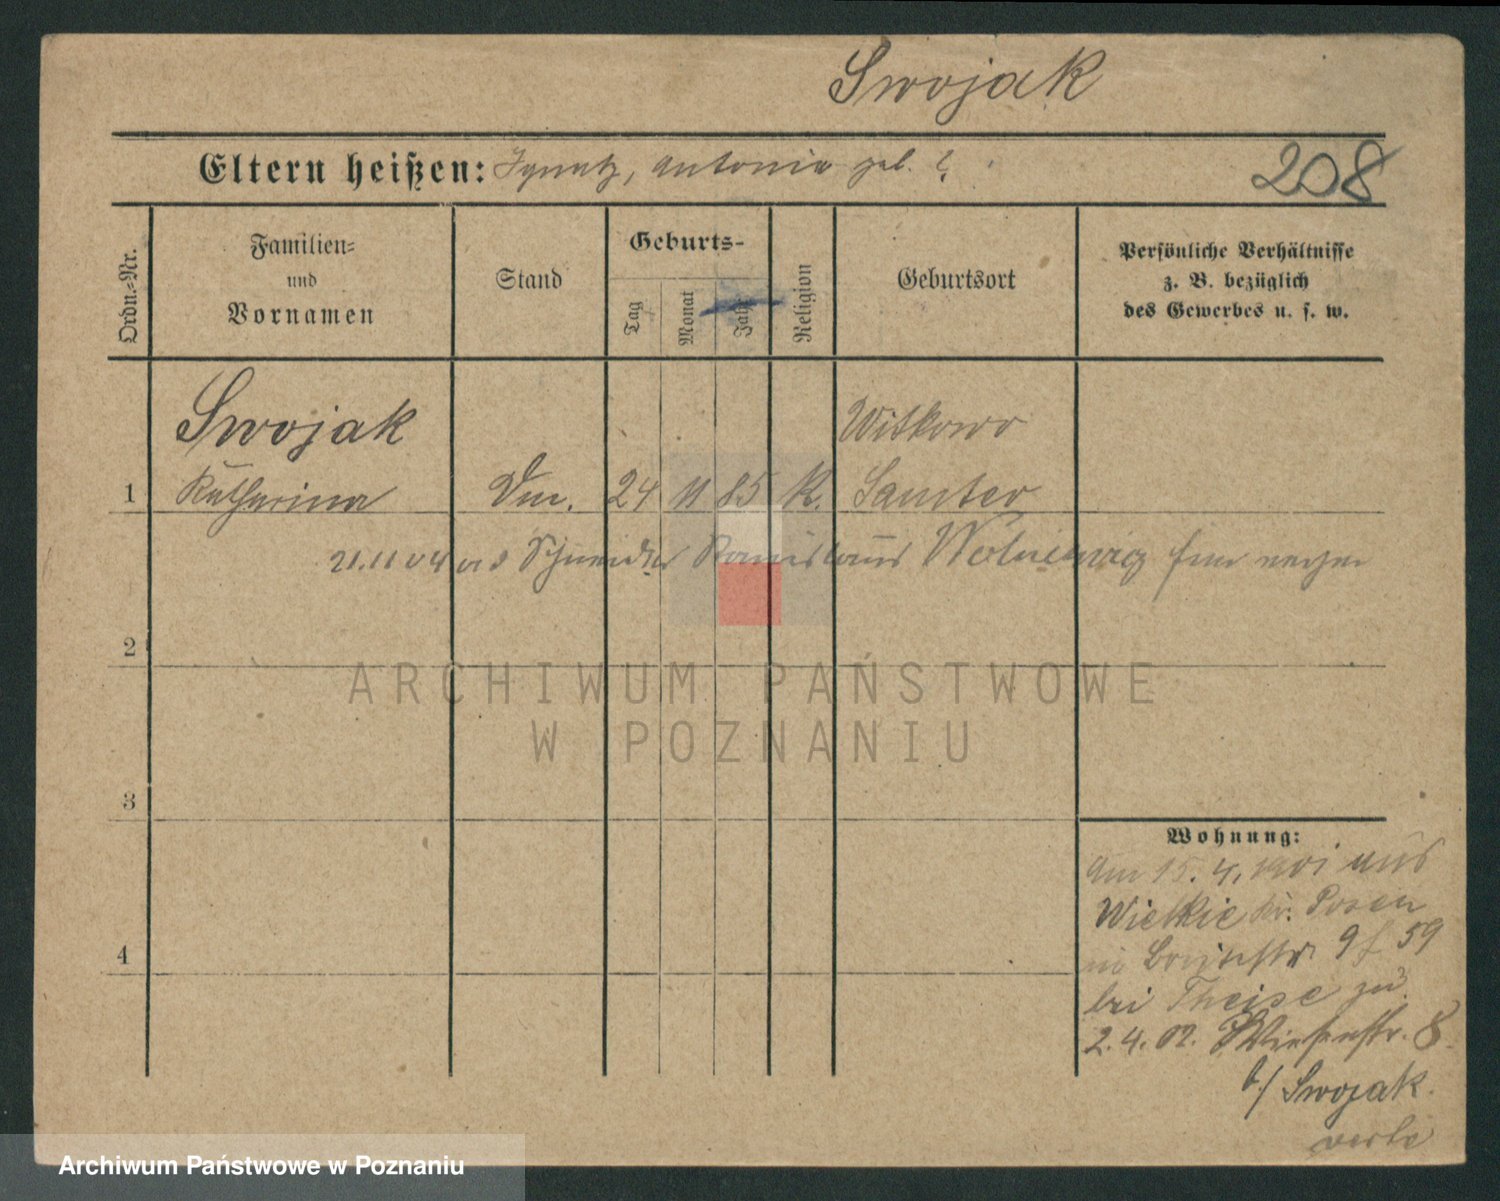 Swojak
Eltern heißen: Ignatz, Antonia geb. ?
208
Ordn.-Nr.
Familien- und Vornamen
Stand
Geburts-
Tag
Monat
Jahr
Religion
Geburtsort
Persönliche Verhältnisse
z. B. bezüglich
des Gewerbes u. s. w.
Swojak
Witkowo
1 Katharina Dm. 24 11 85 K. Samter
21.11 04 Schneider Stanislaus
2
ARCHIWUM PAŃSTWOWE
W POZNANIU
3
Wohnung:
Am 15. 4. 1901 aus
Wielkie Kr. Posen
in Breitestr 9 59
bei Theise zu
2. 4. 02. Wiesenstr. 8.
4
b/ Swojak.
Archiwum Państwowe w Poznaniu